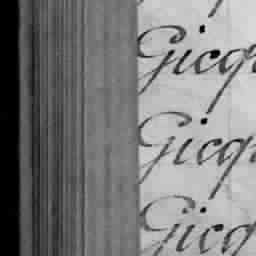 Gicq
Gicq
Gicq